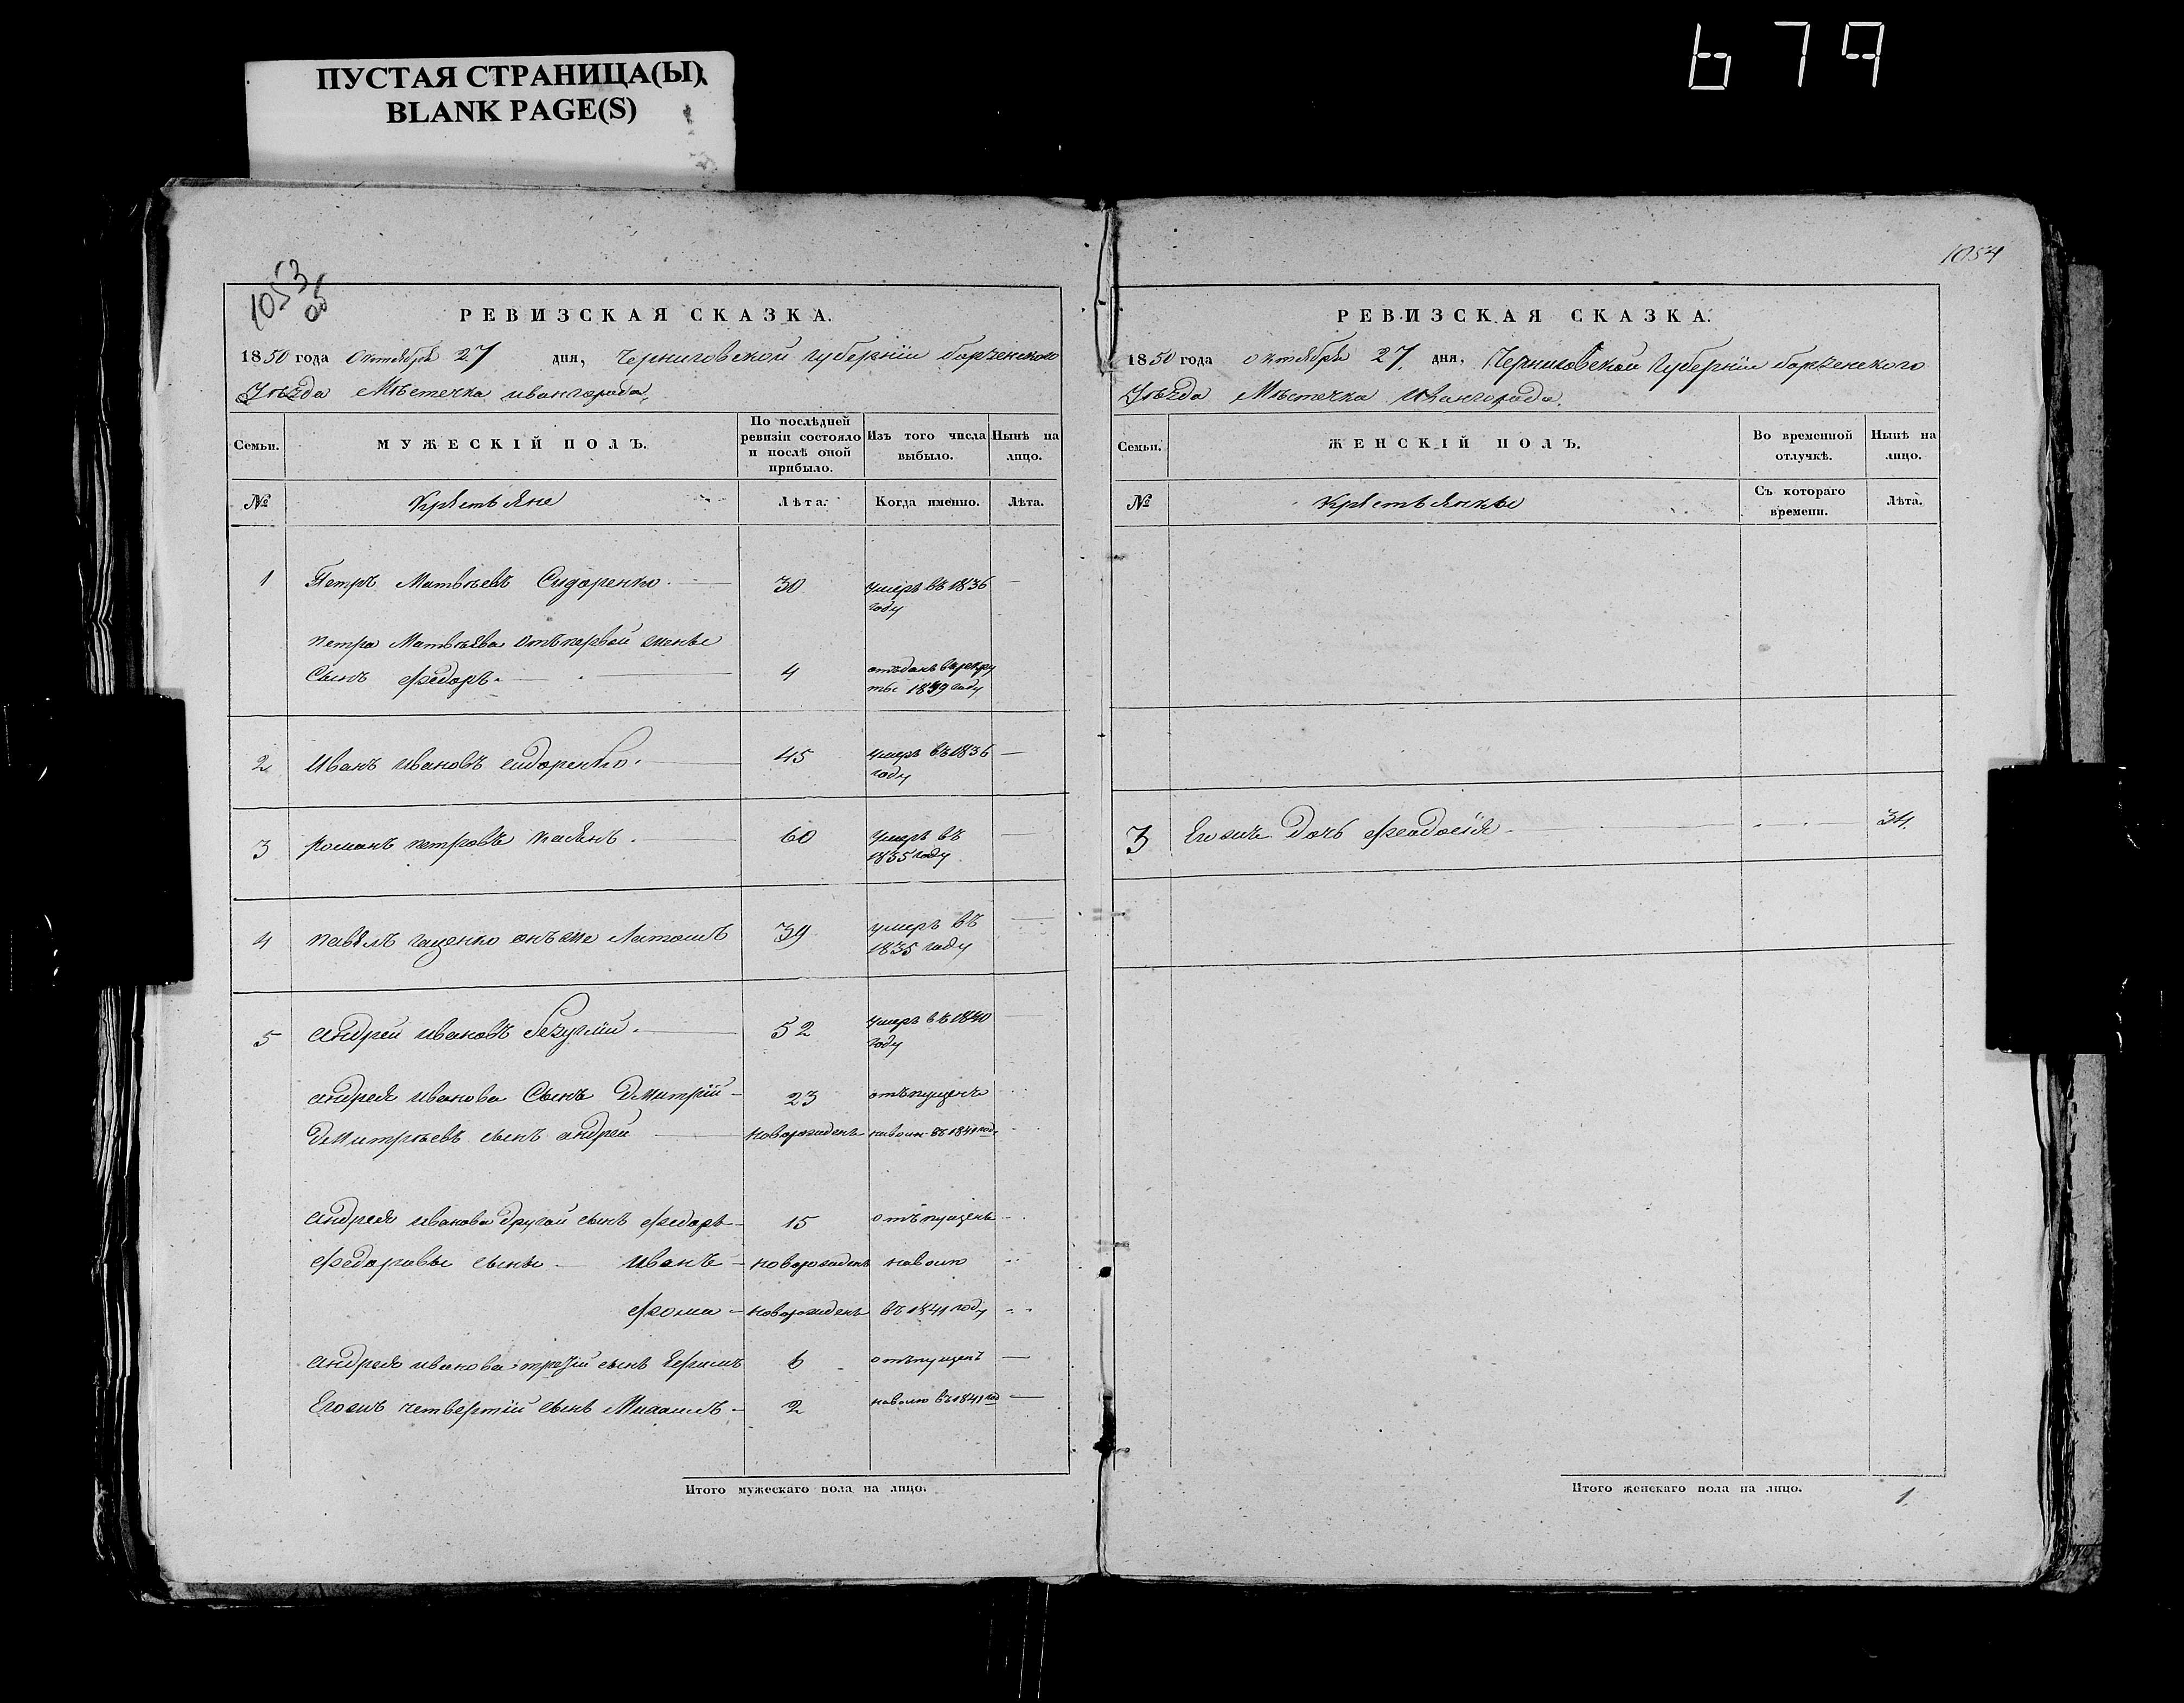 679
ПУСТАЯ СТРАНИЦА(Ы)
BLANK PAGE(S)
1053
об
РЕВИЗСКАЯ СКАЗКА.
1850 года октября 27 дня, Черниговской губерніи борзенского
Уѣзда Мѣстечка ивангорода,
Семьи. МУЖЕСКІЙ ПОЛЪ. По послѣдней ревизіи состояло и послѣ оной прибыло. Изъ того числа выбыло. Нынѣ на лицо.
№ Крестьяне Лѣта. Когда именно. Лѣта.
1 Петръ Матвѣевъ Сидоренко. 30 умеръ въ 1836 —
году
петра Матвѣева отъ первой жены
Сынъ федоръ. 4 отъданъ врекру
ты 1849 году
2 Иванъ ивановъ сидоренко. 45 умеръ въ 1836 —
году
3 романъ петровъ 60 умеръ въ —
1835 году
4 павелъ онъже 39 умеръ въ —
1835 году
5 андрей ивановъ 52 умеръ въ 1840 —
году
андрея иванова Сынъ Дмитрій - 23 отъпущенъ
Дмитріевъ сынъ андрей новорожденъ наволю въ 1841 год.
андрея иванова другой сынъ федоръ - 15 отъпущенъ
федоровы сыны — иванъ - новорожденъ наволю
фома - новорожденъ въ 1841 году
андрея иванова третій сынъ Ефимъ 6 отъпущенъ —
Егожъ четвертій сынъ Михаилъ - 2 наволю въ 1841 год —
Итого мужескаго пола на лицо.
1054
РЕВИЗСКАЯ СКАЗКА.
1850 года октября 27 дня, Черниговской Губерніи борзенского
Уѣзда Мѣстечка ивангорода.
Семьи. ЖЕНСКІЙ ПОЛЪ. Во временной отлучкѣ. Нынѣ на лицо.
№ Крестьянки Съ котораго времени. Лѣта.
3 Егожъ Дочь феодосія 34.
Итого женскаго пола на лицо. 1.